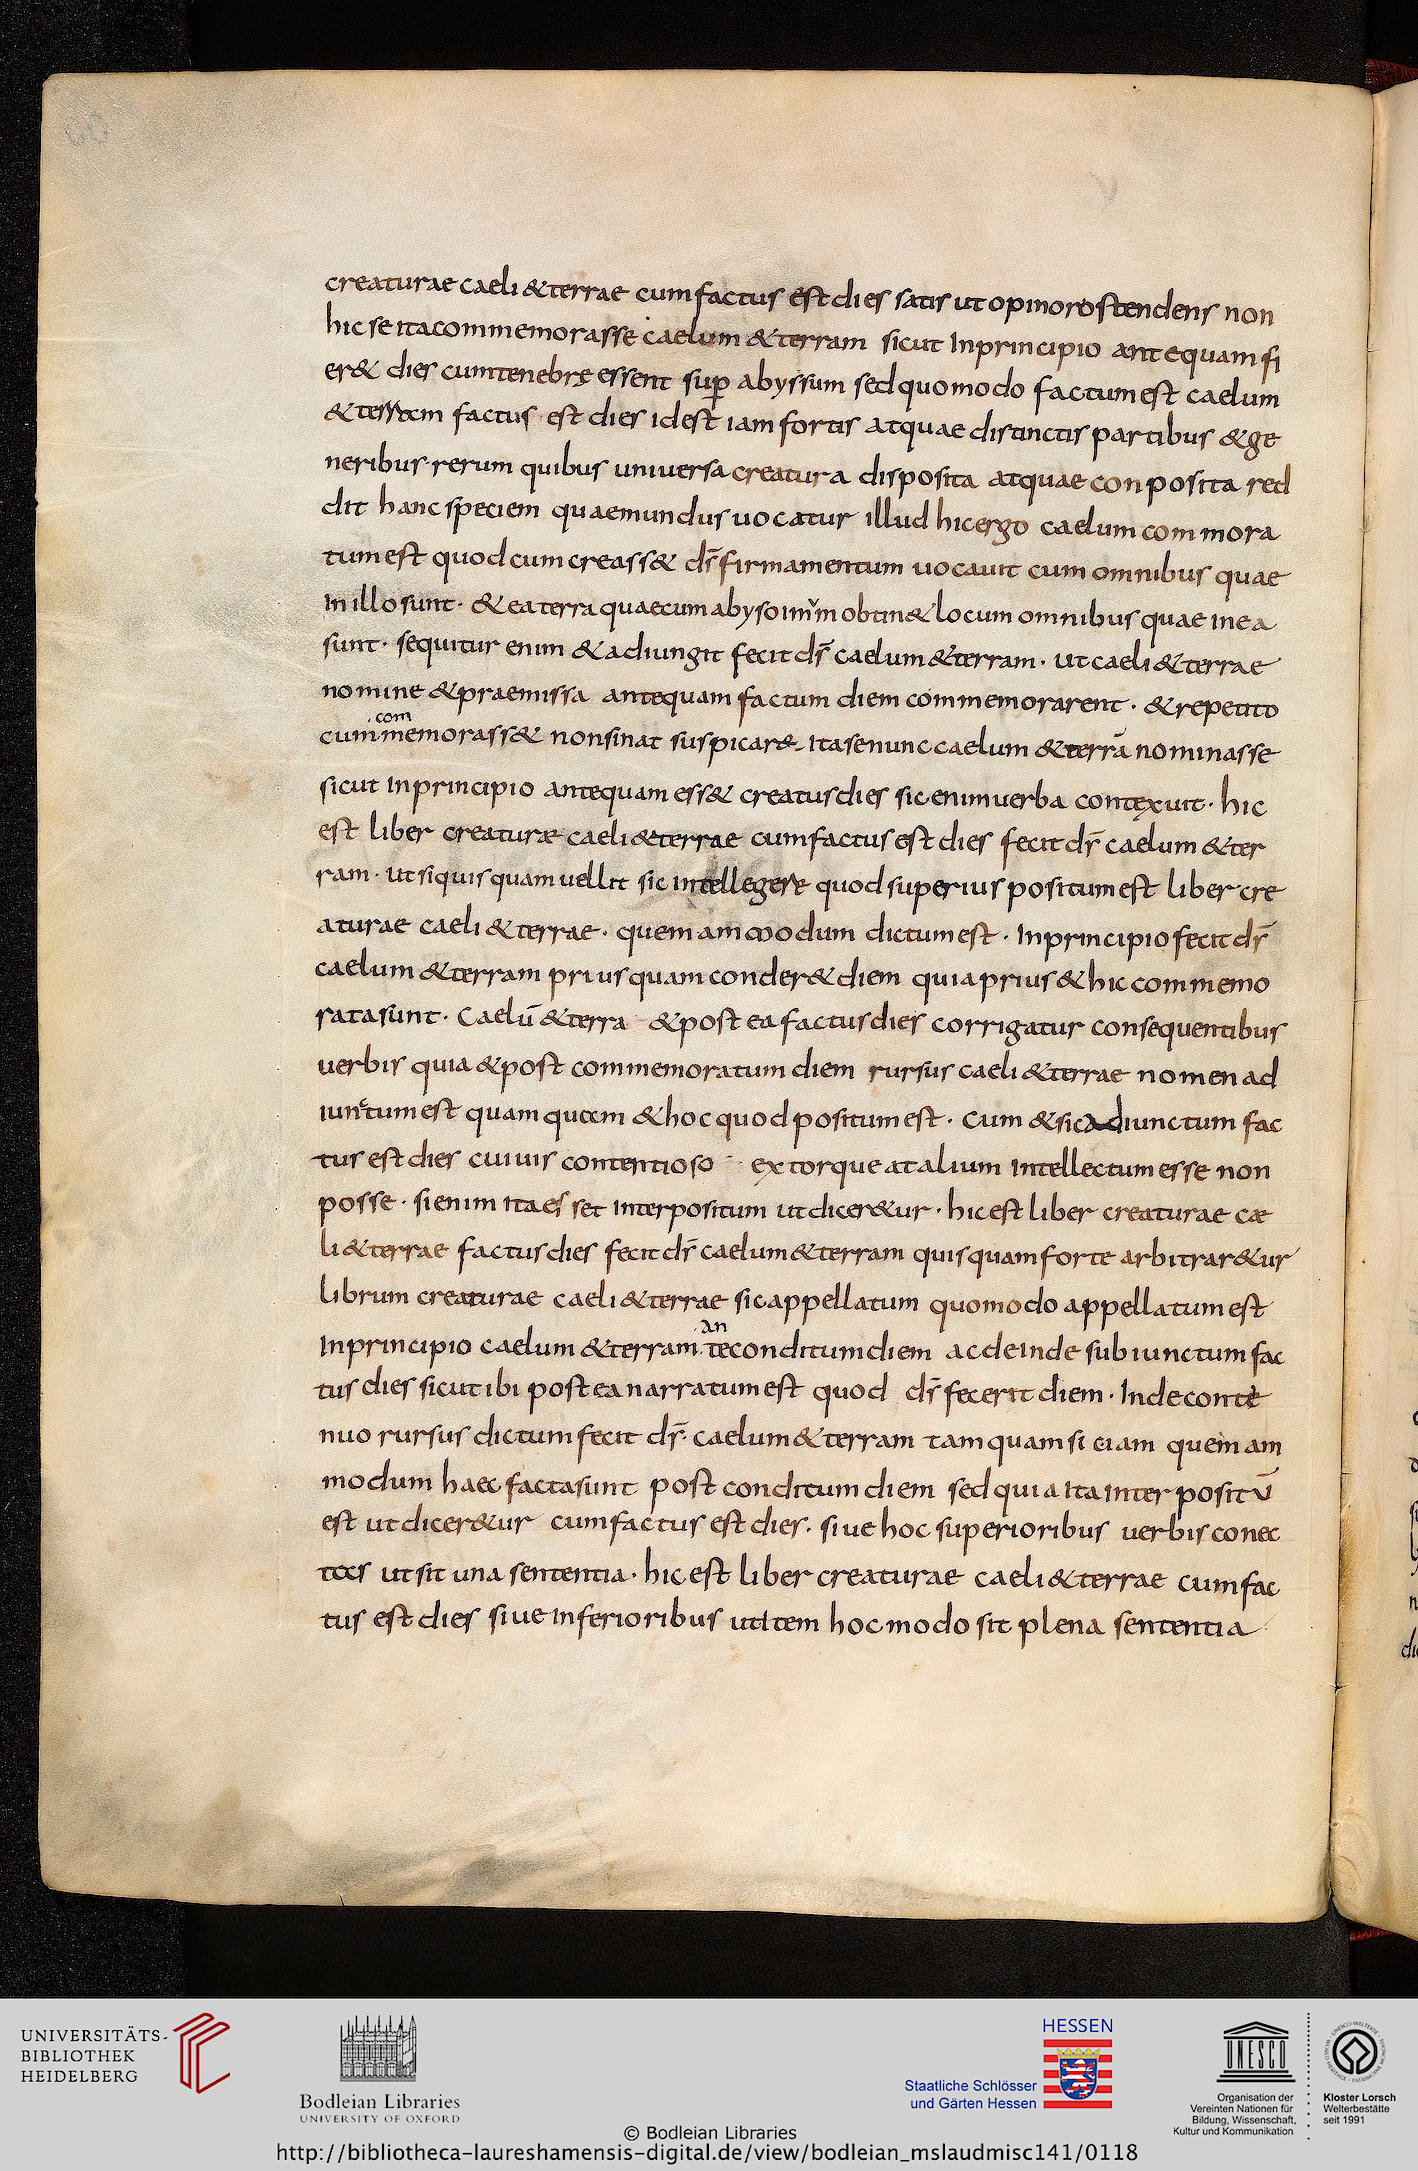 creaturae caeli & terrae cum factus est dies satis ut opinor ostendens non
hic se ita commemorasse caelum & terram sicut In principio antequam fi
er& dies cum tenebrę essent sup̄ abyssum sed quomodo factum est caelum
& terram factus est dies id est iam fortis atquae distinctis partibus & ge
neribus rerum quibus uniuersa creatura disposita atquae conposita red
dit hanc speciem quae mundus uocatur illud hic ergo caelum commora
tum est quod cum creass& d̄s firmamentum uocauit cum omnibus quae
In illo sunt · & ea terra quae cum abyso obtin& locum omnibus quae in ea
sunt · sequitur enim & adiungit fecit d̄s caelum & terram · ut caeli & terrae
nomine & praemissa antequam factum diem commemorarent · & repetito
cum com memorass& non sinat suspicar& ita se nunc caelum & terrā nominasse
sicut In principio antequam ess& creatus dies sic enim uerba contexuit · hic
est liber creaturae caeli & terrae cum factus est dies fecit d̄s caelum & ter
ram · ut si quis quam uellit sic intellegere quod superius positum est liber cre
aturae caeli & terrae · quemammodum dictum est · In principio fecit d̄s
caelum & terram prius quam conder& diem quia prius & hic commemo
rata sunt · Caelū & terra & postea factus dies corrigatur consequentibus
uerbis quia & post commemoratum diem rursus caeli & terrae nomen ad
iunctum est quamquam & hoc quod positum est · Cum & sic adiunctum fac
tus est dies cuiuis contentioso extorqueat alium Intellectum esse non
posse · si enim ita es set Interpositum ut dicer&ur · hic est liber creaturae cae
li & terrae factus dies fecit d̄s caelum & terram quisquam forte arbitrar&ur
librum creaturae caeli & terrae sic appellatum quomodo appellatum est
In principio caelum & terram an te conditum diem ac deinde subiunctum fac
tus dies sicut ibi postea narratum est quod d̄s fecerit diem · Inde conte
nuo rursus dictum fecit d̄s caelum & terram tamquam si eiam quemam
modum haec facta sunt post conditum diem sed quia ita Inter positū
est ut dicer&ur cum factus est dies · siue hoc superioribus uerbis conec
tas ut sit una sententia · hic est liber creaturae caeli & terrae cum fac
tus est dies siue Inferioribus ut Item hoc modo sit plena sententia
UNIVERSITÄTS-
BIBLIOTHEK
HEIDELBERG
Bodleian Libraries
UNIVERSITY OF OXFORD
HESSEN
Staatliche Schlösser
und Gärten Hessen
UNESCO
Organisation der
Vereinten Nationen für
Bildung, Wissenschaft,
Kultur und Kommunikation
Kloster Lorsch
Welterbestätte
seit 1991
© Bodleian Libraries
http://bibliotheca-laureshamensis-digital.de/view/bodleian_mslaudmisc141/0118